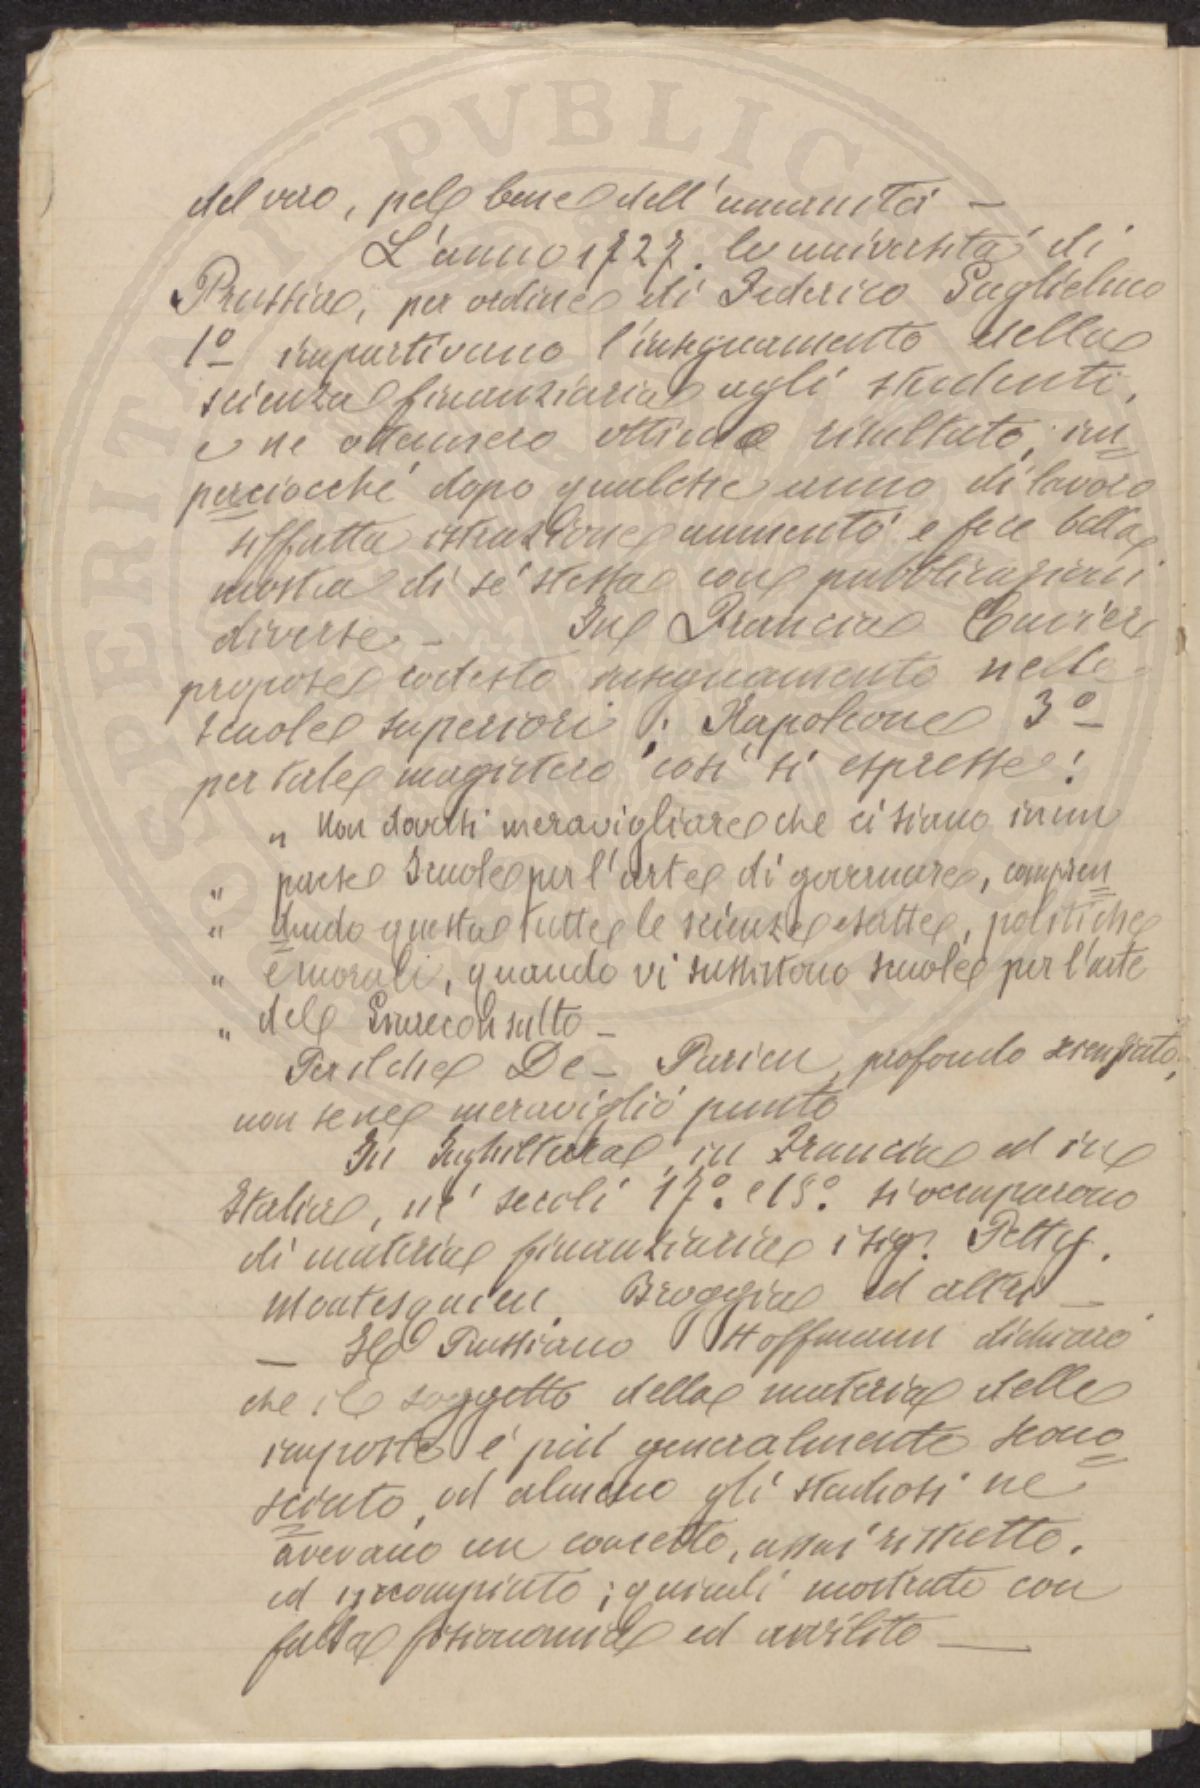 del vero, pel bene dell'umanità —
L'anno 1727. le università di
Prussia, per ordine di Federico Guglielmo
1º impartivano l'insegnamento della
scienza finanziaria agli studenti,
e ne ottennero ottimo risultato, im
perciocché dopo qualche anno di lavoro
siffatta istruzione aumentò e fece bella
mostra di sé stessa con pubblicazioni
diverse — In Francia Cuvier
propose codesto insegnamento nelle
scuole superiori; Napoleone 3º
per tale magistero così si espresse:
" Non doversi meravigliare che ci siano in un
" paese Scuole per l'arte di governare, compren
" dendo questa tutte le scienze esatte, politiche
" e morali, quando vi sussistono scuole per l'arte
" del Giureconsulto —
Perilché De — Parieu, profondo scienziato,
non se ne meravigliò punto
In Inghilterra, in Francia ed in
Italia, ne' secoli 17º. e 18º. si occuparono
di materia finanziaria i sig.ri Petty,
Montesquieu, Broggia ed altri —
— Il Prussiano Hoffmann dichiarò
che il soggetto della materia delle
imposte è più generalmente scono
sciuto, od almeno gli studiosi ne
avevano un concetto, assai ristretto,
ed incompiuto; quindi mostrato con
falsa fisionomia ed avvilito —
PROSPERITATI PVBLICAE